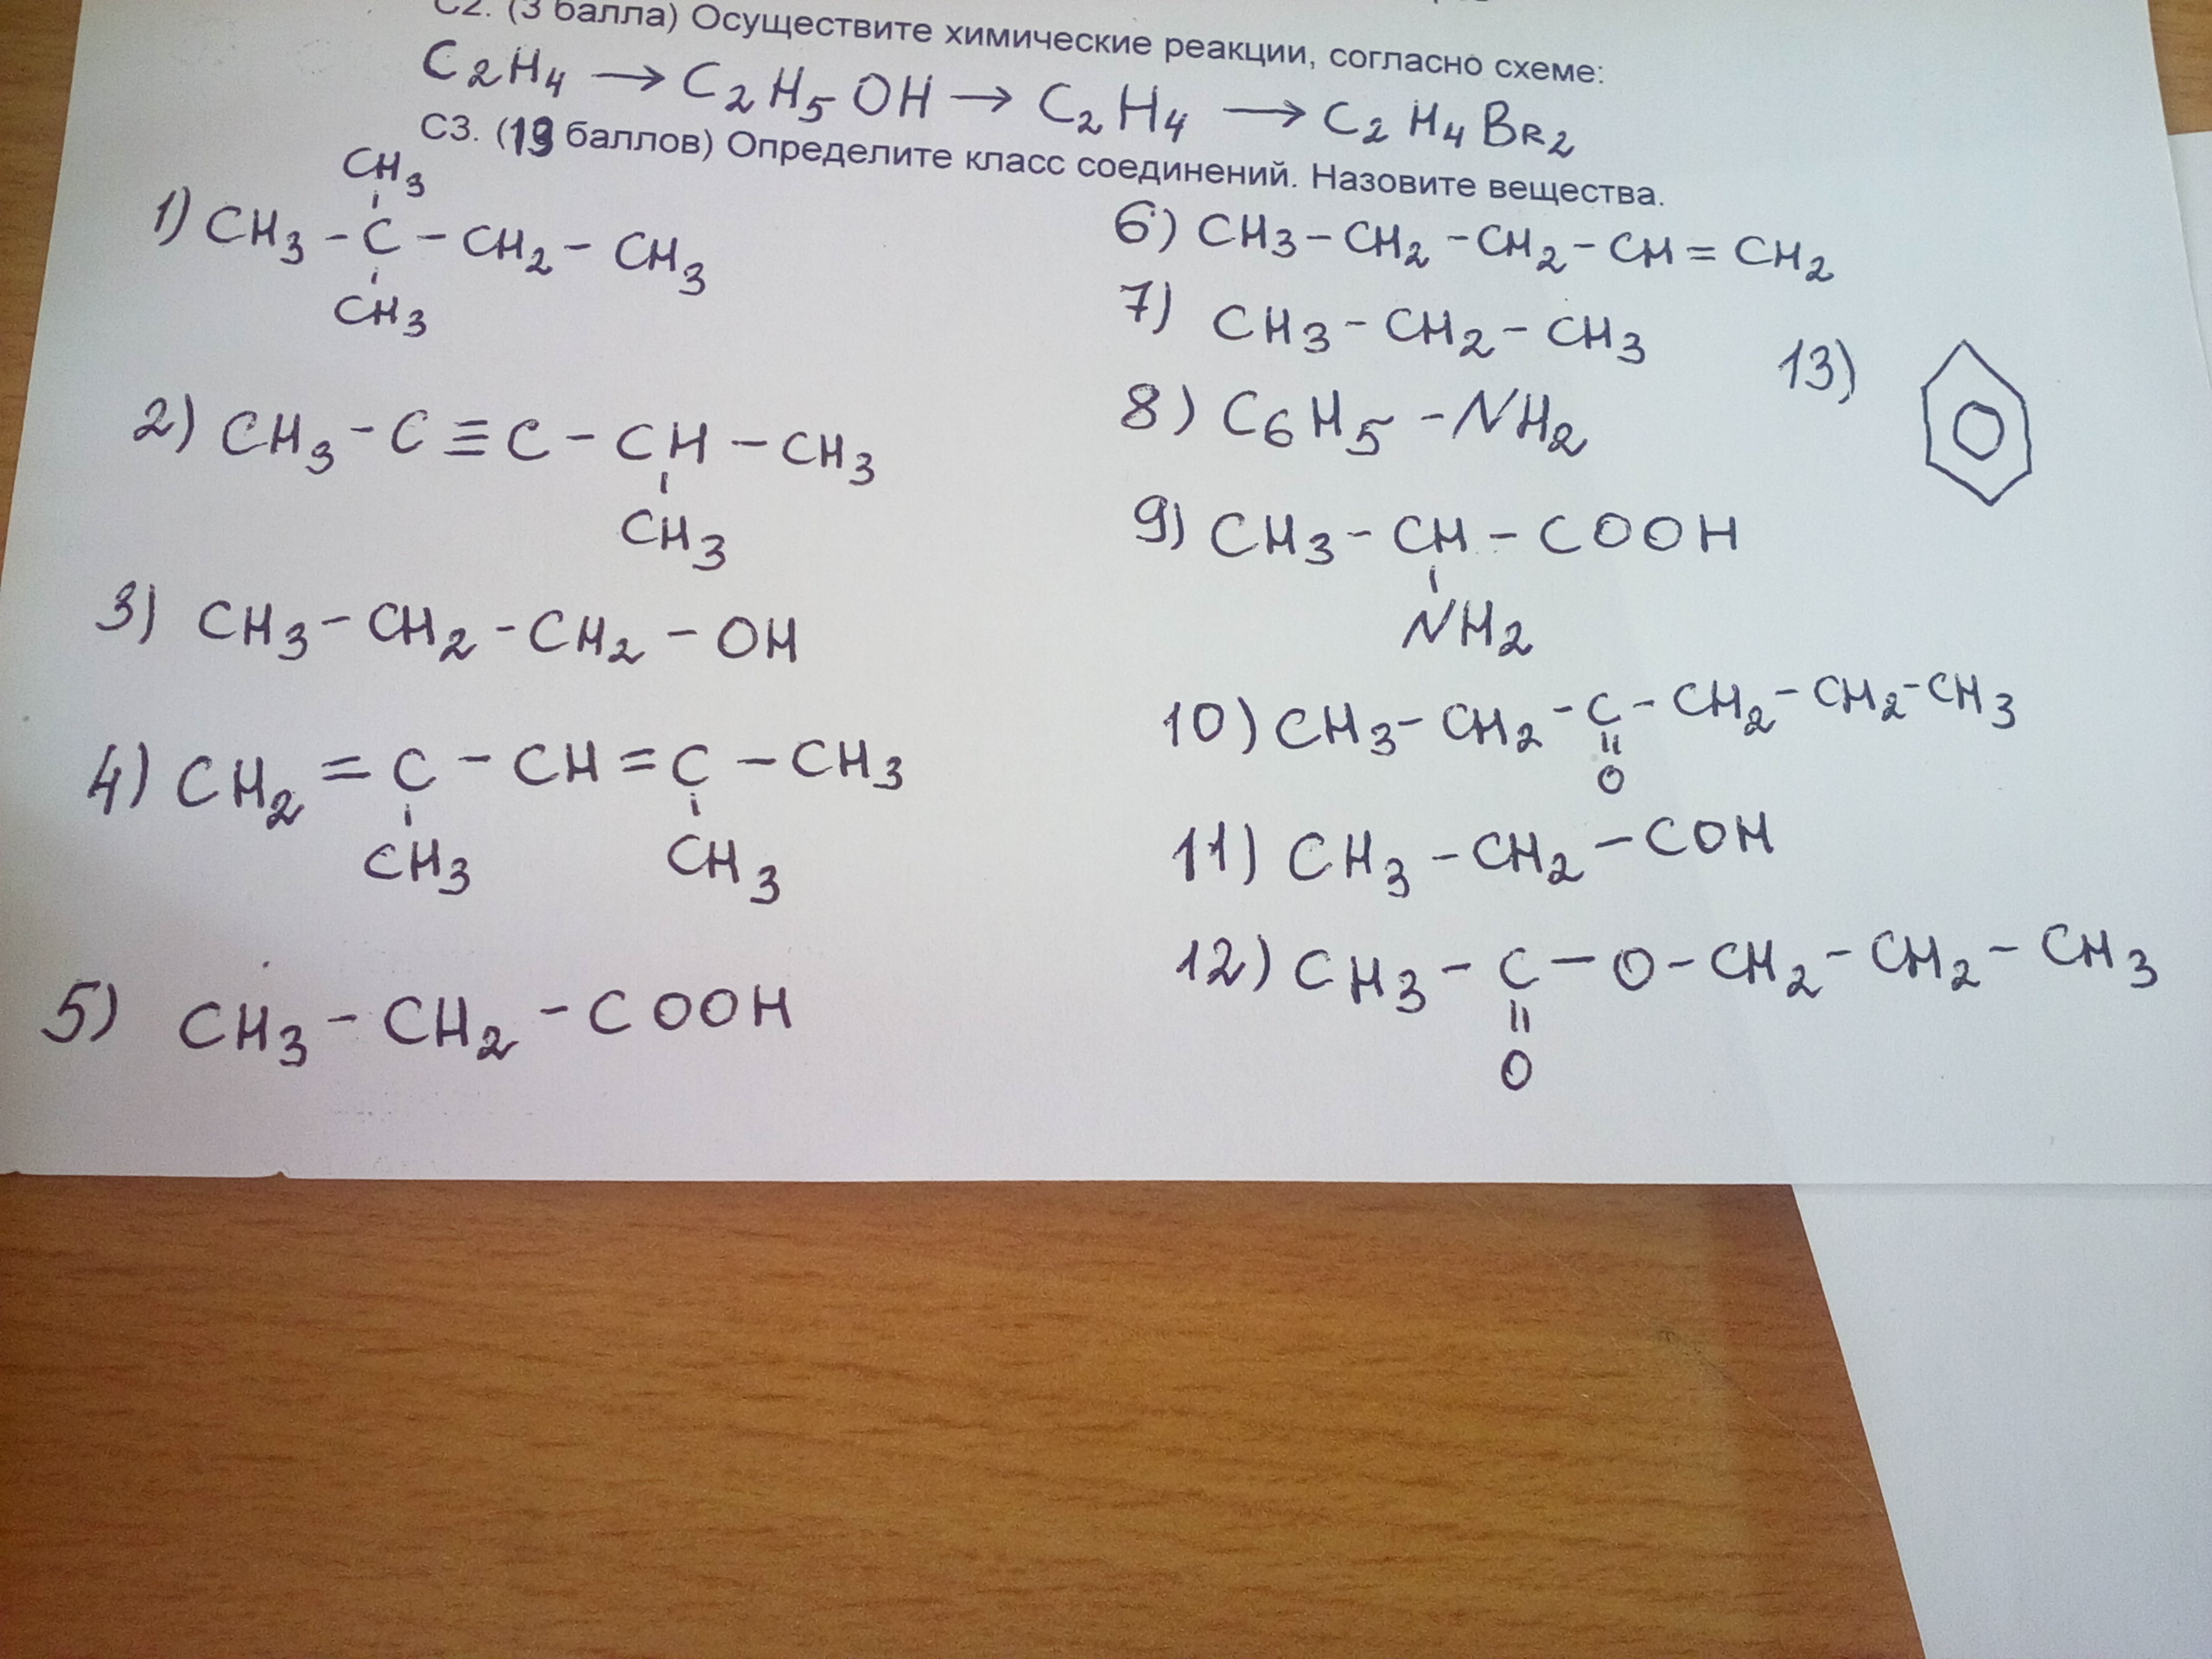 С2. (3 балла) Осуществите химические реакции, согласно схеме:
C₂H₄ → C₂H₅OH → C₂H₄ → C₂H₄BR₂
С3. (19 баллов) Определите класс соединений. Назовите вещества.
CH₃
1) CH₃ - C - CH₂ - CH₃
CH₃
2) CH₃ - C ≡ C - CH - CH₃
CH₃
3) CH₃ - CH₂ - CH₂ - OH
4) CH₂ = C - CH = C - CH₃
CH₃ CH₃
5) CH₃ - CH₂ - COOH
6) CH₃ - CH₂ - CH₂ - CH = CH₂
7) CH₃ - CH₂ - CH₃
8) C₆H₅ - NH₂
9) CH₃ - CH - COOH
NH₂
10) CH₃ - CH₂ - C - CH₂ - CH₂ - CH₃
O
11) CH₃ - CH₂ - COH
12) CH₃ - C - O - CH₂ - CH₂ - CH₃
O
13)